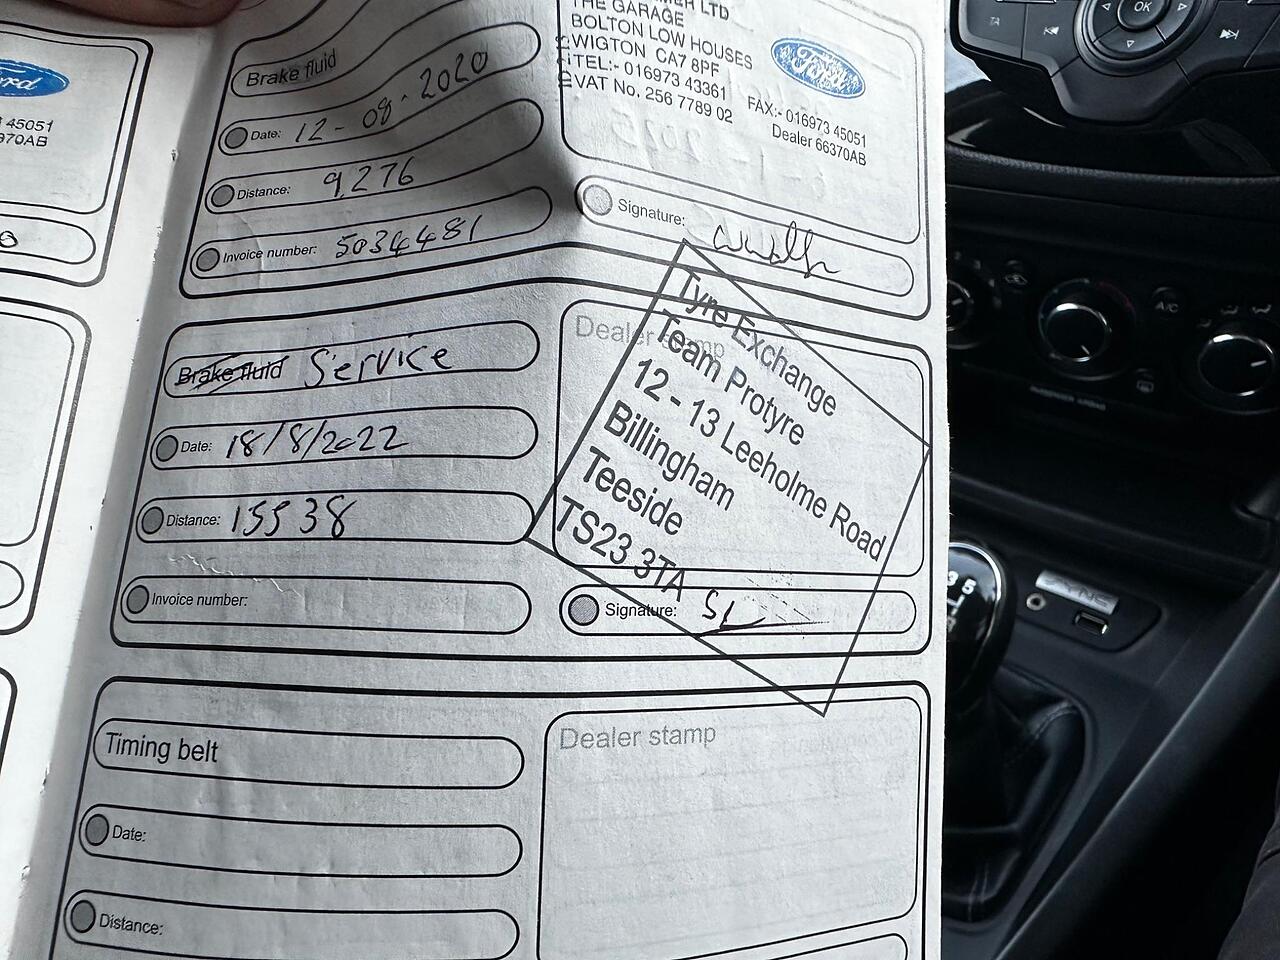 ord
45051
370AB
Brake fluid
Date: 12-08-2020
Distance: 9,276
Invoice number: 5034481
LTD
THE GARAGE
BOLTON LOW HOUSES
WIGTON CA7 8PF
TEL:- 016973 43361
FAX:- 016973 45051
VAT No. 256 7789 02
Dealer 66370AB
Ford
Signature:
Brake fluid Service
Date: 18/8/2022
Distance: 15538
Invoice number:
Dealer stamp
Tyre Exchange
Team Protyre
12 - 13 Leeholme Road
Billingham
Teeside
TS23 3TA
Signature: SL
Timing belt
Date:
Distance:
Dealer stamp
OK
A/C
3 5
SYNC